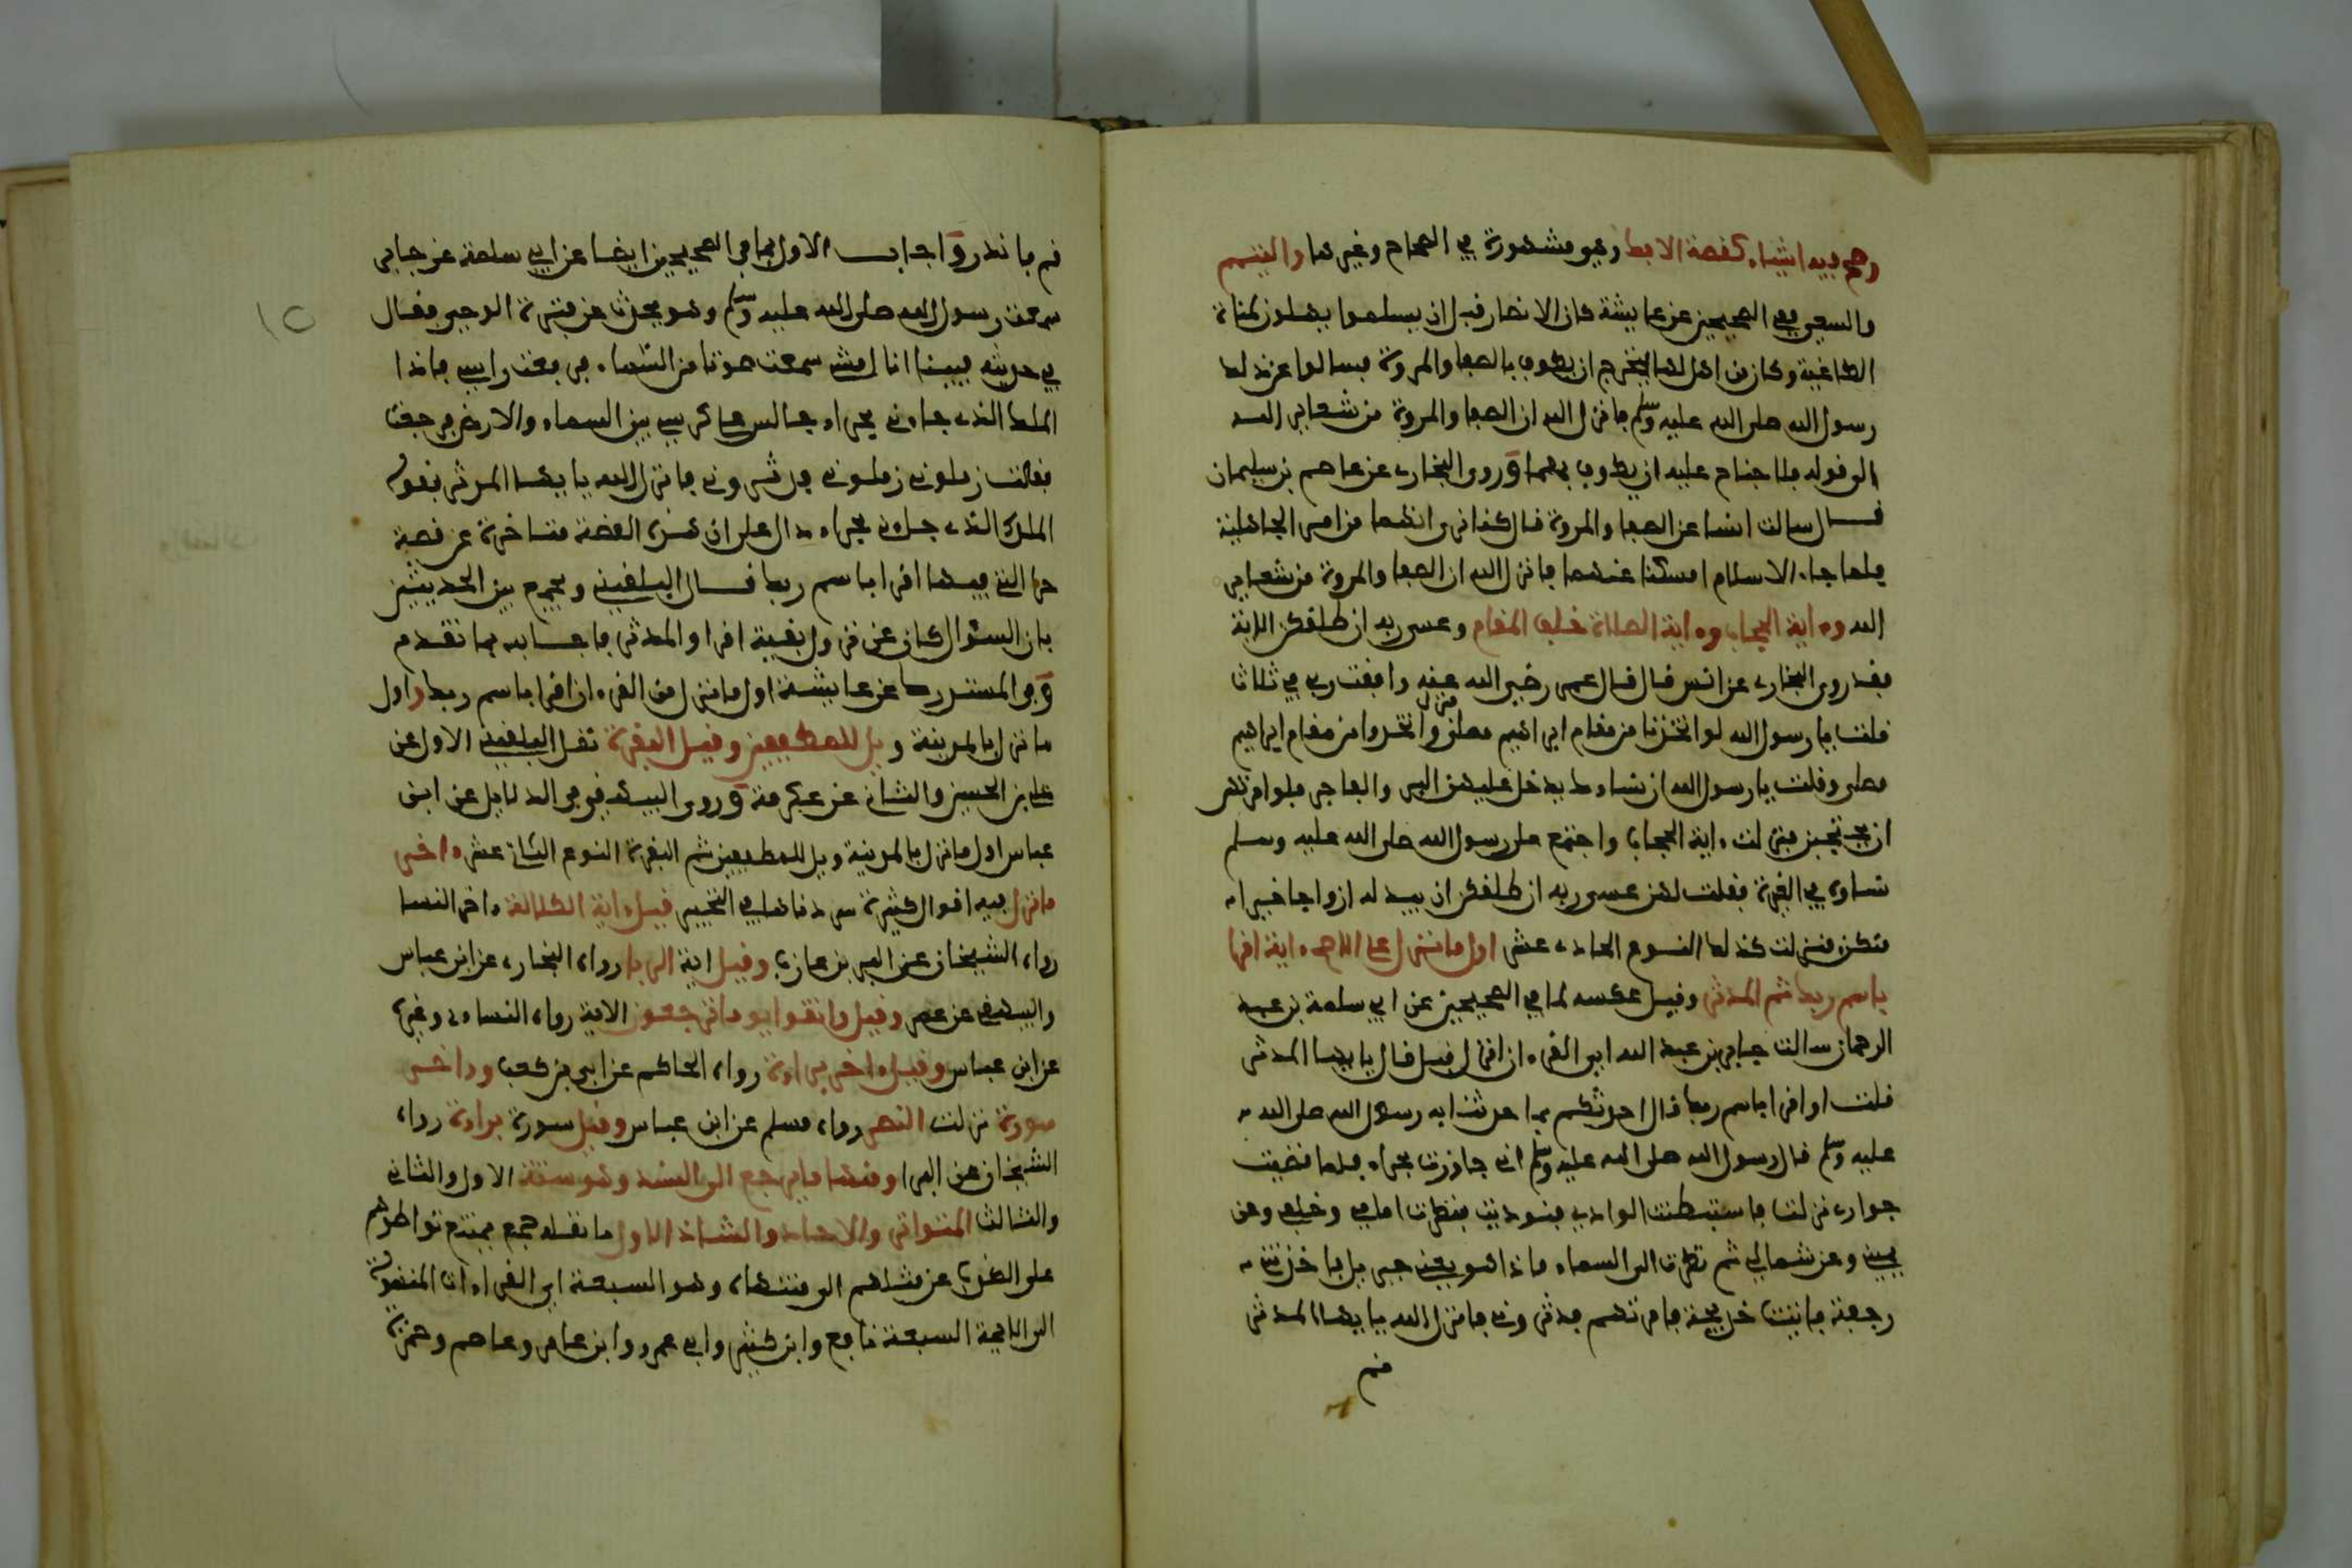 وهي فيه اشياء كقصة الافك وهو مشهورة في الصحاح وغيرها والتيمم
والسعي ففي الصحيحين عن عايشة كان الانصار قبل ان يسلموا يهلون لمناة
الطاغية وكان من اهل لها يتحرج ان يطوف بالصفا والمروة فسالوا عن ذلك
رسول الله صلى الله عليه وسلم فانزل الله ان الصفا والمروة من شعاير الله
الى قوله فلا جناح عليه ان يطوف بهما وروى البخاري عن عاصم بن سليمان
قال سالت انسا عن الصفا والمروة قال كنا نرى انهما من امر الجاهلية
فلما جاء الاسلام امسكنا عنهما فانزل الله ان الصفا والمروة من شعاير
الله وءاية الحجاب وءاية الصلاة خلف المقام وعسى ربه ان طلقكن الاية
فقد روى البخاري عن انس قال قال عمر رضي الله عنه وافقت ربي في ثلاث
قلت يا رسول الله لو اتخذنا من مقام ابراهيم مصلى فنزل واتخذوا من مقام ابراهيم
مصلى وقلت يا رسول الله ان نساءك يدخل عليهن البر والفاجر فلو امرتهن
ان يحتجبن فنزلت ءاية الحجاب واجتمع على رسول الله صلى الله عليه وسلم
نساؤه في الغيرة فقلت لهن عسى ربه ان طلقكن ان يبدله ازواجا خيرا
منكن فنزلت كذلك النوع الحادي عشر اول ما نزل على الاصح ءاية اقرا
باسم ربك ثم المدثر وقيل عكسه لما في الصحيحين عن ابي سلمة بن عبد
الرحمان سالت جابر بن عبد الله اي القرءان انزل قبل قال يا يها المدثر
قلت او اقرا باسم ربك قال احدثكم بما حدثنا به رسول الله صلى الله
عليه وسلم قال رسول الله صلى الله عليه وسلم اني جاورت بحراء فلما قضيت
جواري نزلت فاستبطنت الوادي فنوديت فنظرت امامي وخلفي وعن
يميني وعن شمالي ثم نظرت الى السماء فاذا هو يعني جبريل فاخذتني
رجفة فاتيت خديجة فامرتهم فدثروني فانزل الله يا يها المدثر
قم
قم فانذر واجاب الاول بما في الصحيحين ايضا عن ابي سلمة عن جابر
سمعت رسول الله صلى الله عليه وسلم وهو يحدث عن فترة الوحي فقال
في حديثه فبينا انا امشي سمعت صوتا من السماء فرفعت راسي فاذا
الملك الذي جاءني بحراء جالس على كرسي بين السماء والارض فرجعت
فقلت زملوني زملوني فدثروني فانزل الله يا يها المدثر فقوله
الملك الذي جاءني بحراء دال على ان هذه القصة متاخرة عن قصة
حراء التي فيها اقرا باسم ربك قال البلقيني ويجمع بين الحديثين
بان السؤال كان عن نزول بقية اقرا والمدثر فاجابه بما تقدم
وفي المستدرك عن عايشة اول ما نزل من القرءان اقرا باسم ربك واول
ما نزل بالمدينة ويل للمطففين وقيل البقرة نقل البلقيني الاول عن
علي بن الحسين والثاني عن عكرمة وروى البيهقي في الدلايل عن ابن
عباس اول ما نزل بالمدينة ويل للمطففين ثم البقرة النوع الثاني عشر ءاخر
ما نزل فيه اقوال كثيرة سردناها في التحبير قيل ءاية الكلالة ءاخر النسا
رواه الشيخان عن البراء بن عازب وقيل اية الربا رواه البخاري عن ابن عباس
والبيهقي عن عمر وقيل واتقوا يوما ترجعون الاية رواه النساءي وغيره
عن ابن عباس وقيل ءاخر براءة رواه الحاكم عن ابي بن كعب وءاخر
سورة نزلت النصر رواه مسلم عن ابن عباس وقيل سورة براءة رواه
الشيخان عن البرا ومنها ما يرجع الى السند وهو ستة الاول والثاني
والثالث المتواتر والاحاد والشاذ الاول ما نقله جمع يمتنع تواطؤهم
على الكذب عن مثلهم الى منتهاه وهو السبعة اي القراءات المنسوبة
الى الايمة السبعة نافع وابن كثير وابي عمرو وابن عامر وعاصم وحمزة